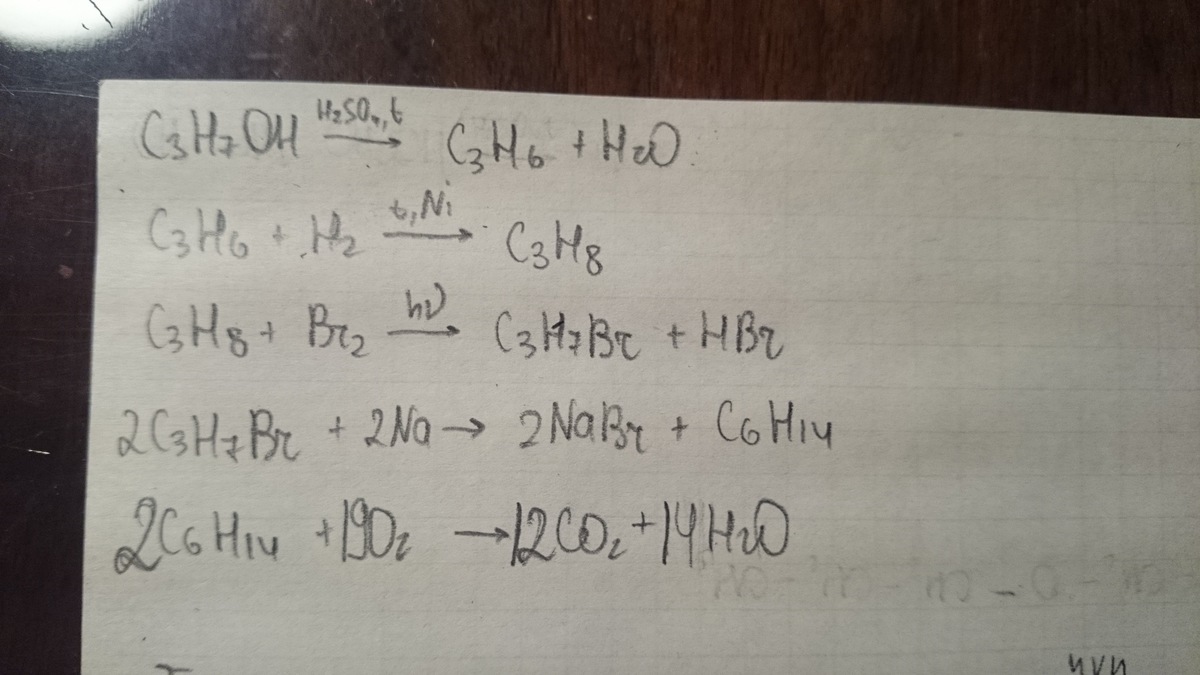 C₃H₇OH \xrightarrow{H₂SO₄, t} C₃H₆ + H₂O
C₃H₆ + H₂ \xrightarrow{t, Ni} C₃H₈
C₃H₈ + Br₂ \xrightarrow{hν} C₃H₇Br + HBr
2C₃H₇Br + 2Na → 2NaBr + C₆H₁₄
2C₆H₁₄ + 19O₂ → 12CO₂ + 14H₂O